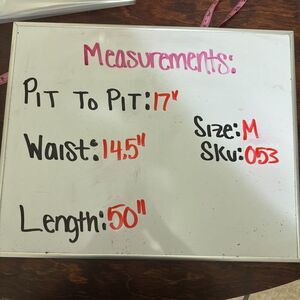 Measurements:
Pit To Pit: 17"
Size: M
Waist: 14.5"
Sku: 053
Length: 50"